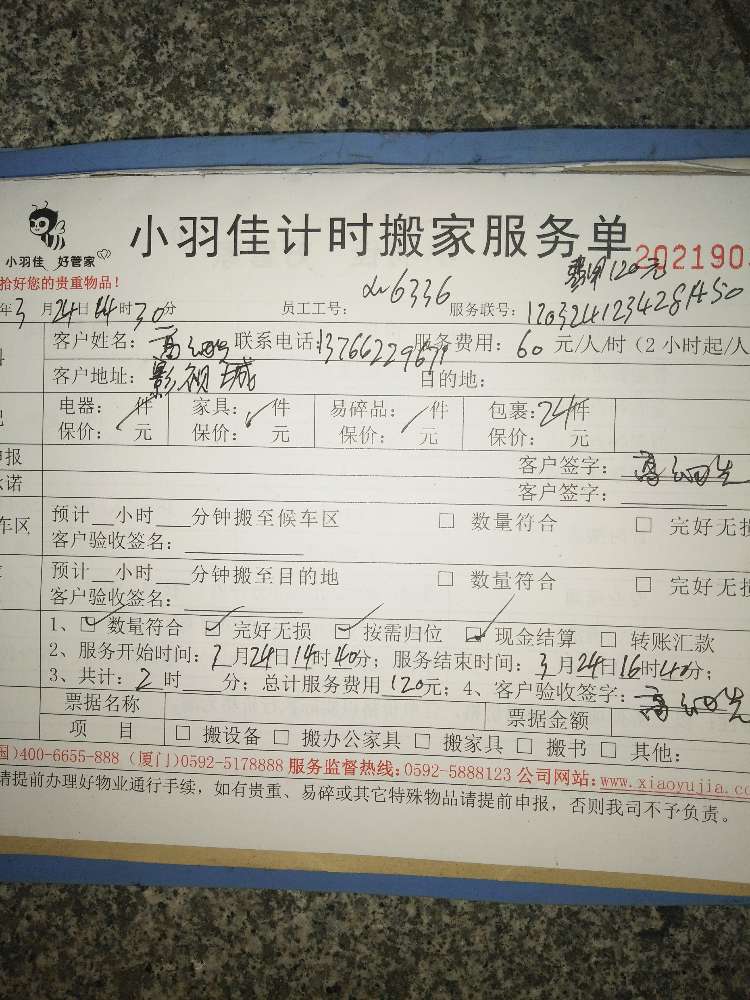 小羽佳 好管家
小羽佳计时搬家服务单
202190
拾好您的贵重物品!
费用120元
年3月24日14时30分 员工工号: 6336 服务联号:
客户姓名: 联系电话: 服务费用: 60 元/人/时 (2小时起/人
客户地址: 影视城 目的地:
电器: 件 家具: 件 易碎品: 件 包裹: 24件
保价: 元 保价: 元 保价: 元 保价: 元
申报 客户签字:
承诺 客户签字:
车区 预计__小时___分钟搬至候车区 □ 数量符合 □ 完好无损
客户验收签名:
预计__小时___分钟搬至目的地 □ 数量符合 □ 完好无损
客户验收签名:
1、☑ 数量符合 ☑ 完好无损 ☑ 按需归位 ☑ 现金结算 □ 转账汇款
2、服务开始时间: 3月24日14时40分; 服务结束时间: 3月24日16时40分;
3、共计: 2 时___分; 总计服务费用 120元; 4、客户验收签字:
票据名称 票据金额
项 目 □ 搬设备 □ 搬办公家具 □ 搬家具 □ 搬书 □ 其他:
国)400-6655-888 (厦门)0592-5178888 服务监督热线:0592-5888123 公司网站:www.xiaoyujia.co
请提前办理好物业通行手续,如有贵重、易碎或其它特殊物品请提前申报,否则我司不予负责。